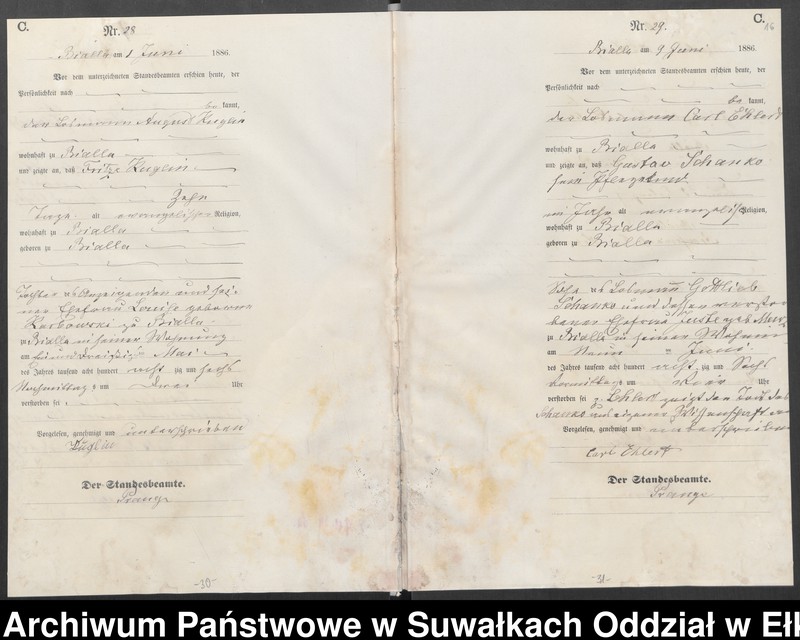 C.
Nr. 28
Bialla am 1 Juni 1886.
Vor dem unterzeichneten Standesbeamten erschien heute, der
Persönlichkeit nach
be kannt,
August
wohnhaft zu Bialla
und zeigte an, daß
Zehn
Tage alt evangelischer Religion,
wohnhaft zu Bialla
geboren zu Bialla
Tochter des Anzeigenden und sei-
ner Ehefrau Louise geborene
zu Bialla
zu Bialla in seiner Wohnung
am ein und dreißigsten Mai
des Jahres tausend acht hundert acht zig und sechs
Nachmittags um drei Uhr
verstorben sei
Vorgelesen, genehmigt und unterschrieben
Der Standesbeamte.
-30-
C.
16
Nr. 29.
Bialla am 9 Juni 1886
Vor dem unterzeichneten Standesbeamten erschien heute, der
Persönlichkeit nach
be kannt,
der Losmann Carl Ehlert
wohnhaft zu Bialla
und zeigte an, daß Gustav Schanko
sein
ein Jahr alt evangelischer Religion,
wohnhaft zu Bialla
geboren zu Bialla
Sohn des Losmann Gottlieb
Schanko und dessen verstor
benen Ehefrau
zu Bialla in seiner Wohnung
am Neun ten Juni
des Jahres tausend acht hundert acht zig und Sechs
Vormittags um Uhr
verstorben sei Ehlert zeigt den Tod des
Schanko aus eigener Wissenschaft an
Vorgelesen, genehmigt und unterschrieben
Carl Ehlert
Der Standesbeamte.
-31-
Archiwum Państwowe w Suwałkach Oddział w Eł